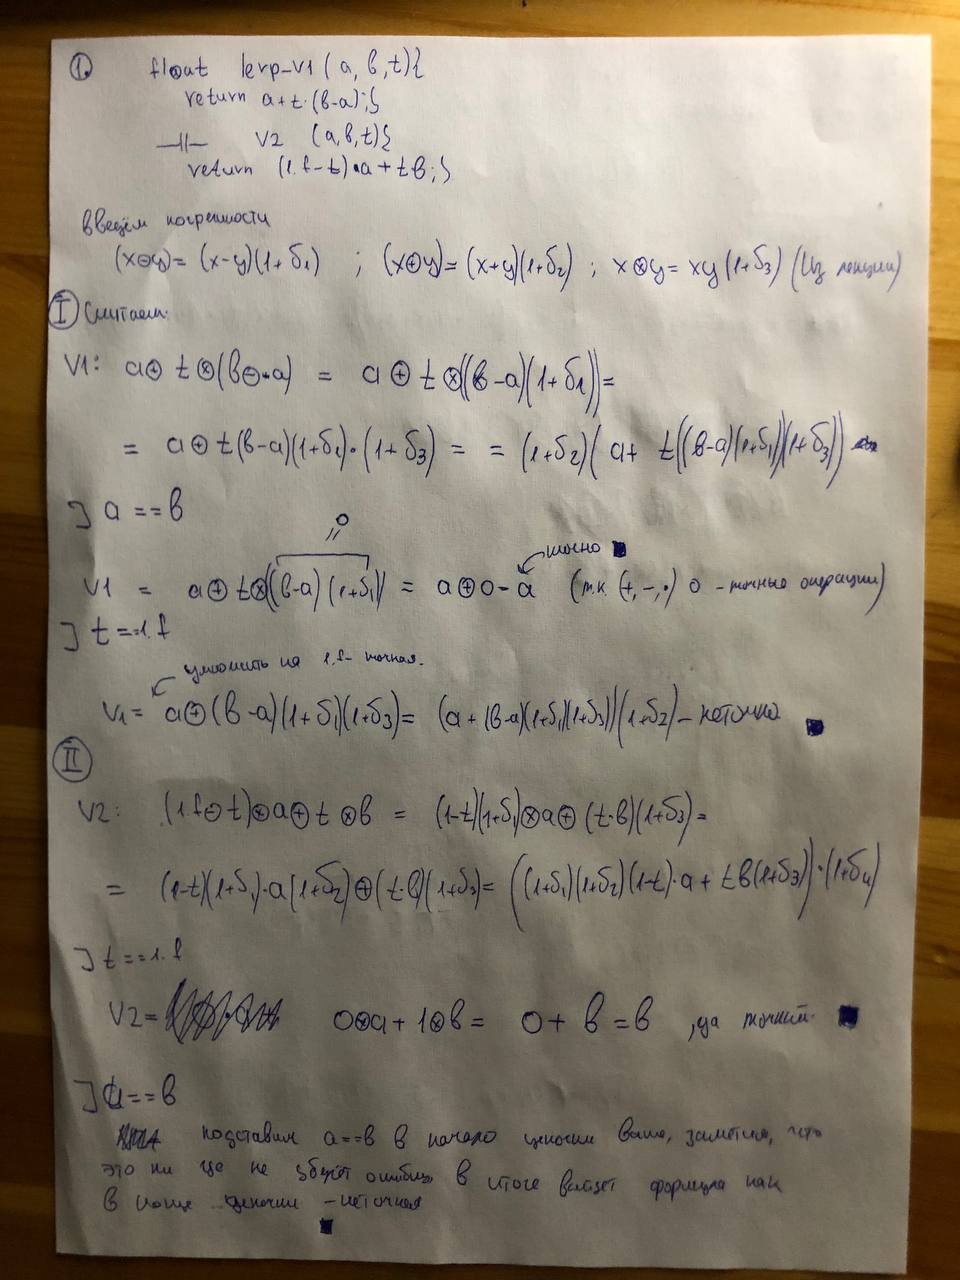 1. float lerp_v1 (a, b, t){
return a+t·(b-a);}
—||— v2 (a,b,t){
return (1.f-t)·a+tb;}
введём погрешности
(x⊖y)=(x-y)(1+δ₁) ; (x⊕y)=(x+y)(1+δ₂) ; x⊗y=xy(1+δ₃) (Из лекции)
I Считаем:
V1: a⊕ t⊗(b⊖a) = a⊕t⊗((b-a)(1+δ₁))=
= a⊕t(b-a)(1+δ₁)·(1+δ₃) = = (1+δ₂)(a+ t((b-a)(1+δ₁))(1+δ₃))
] a==b
0
точно
V1 = a⊕t⊗((b-a)(1+δ₁)) = a⊕0-a (т.к. (+,-,·) 0 - точные операции)
] t==1.f
умножить на 1.f- точная.
V1= a⊕(b-a)(1+δ₁)(1+δ₃)= (a+(b-a)(1+δ₁)(1+δ₃))(1+δ₂)-неточно
II
V2: (1.f⊖t)⊗a⊕t⊗b = (1-t)(1+δ₁)⊗a⊕(t·b)(1+δ₃)=
= (1-t)(1+δ₁)·a(1+δ₂)⊕(t·b)(1+δ₃)= ((1+δ₁)(1+δ₂)(1-t)·a+tb(1+δ₃))·(1+δ₄)
] t==1.f
V2= 0⊗a+1⊗b= 0+b=b ,да точный.
] a==b
подставим a==b в начало цепочки выше, заметим, что
это ни где не ошибки, в итоге формула как
в конце цепочки -неточная